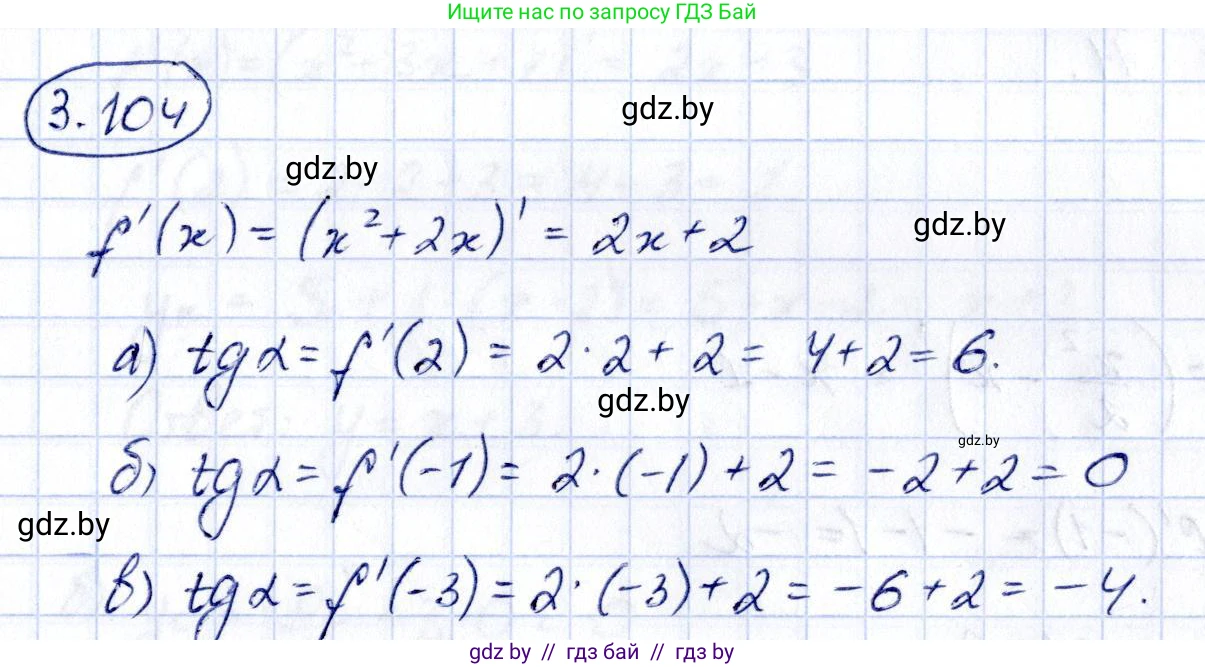 Ищите нас по запросу ГДЗ Бай
3.104
gdz.by
gdz.by
f'(x) = (x²+2x)' = 2x+2
gdz.by
а) tg α = f'(2) = 2·2+2 = 4+2 = 6.
gdz.by
gdz.by
б) tg α = f'(-1) = 2·(-1)+2 = -2+2 = 0
gdz.by
в) tg α = f'(-3) = 2·(-3)+2 = -6+2 = -4.
gdz.by // гдз бай // гдз by